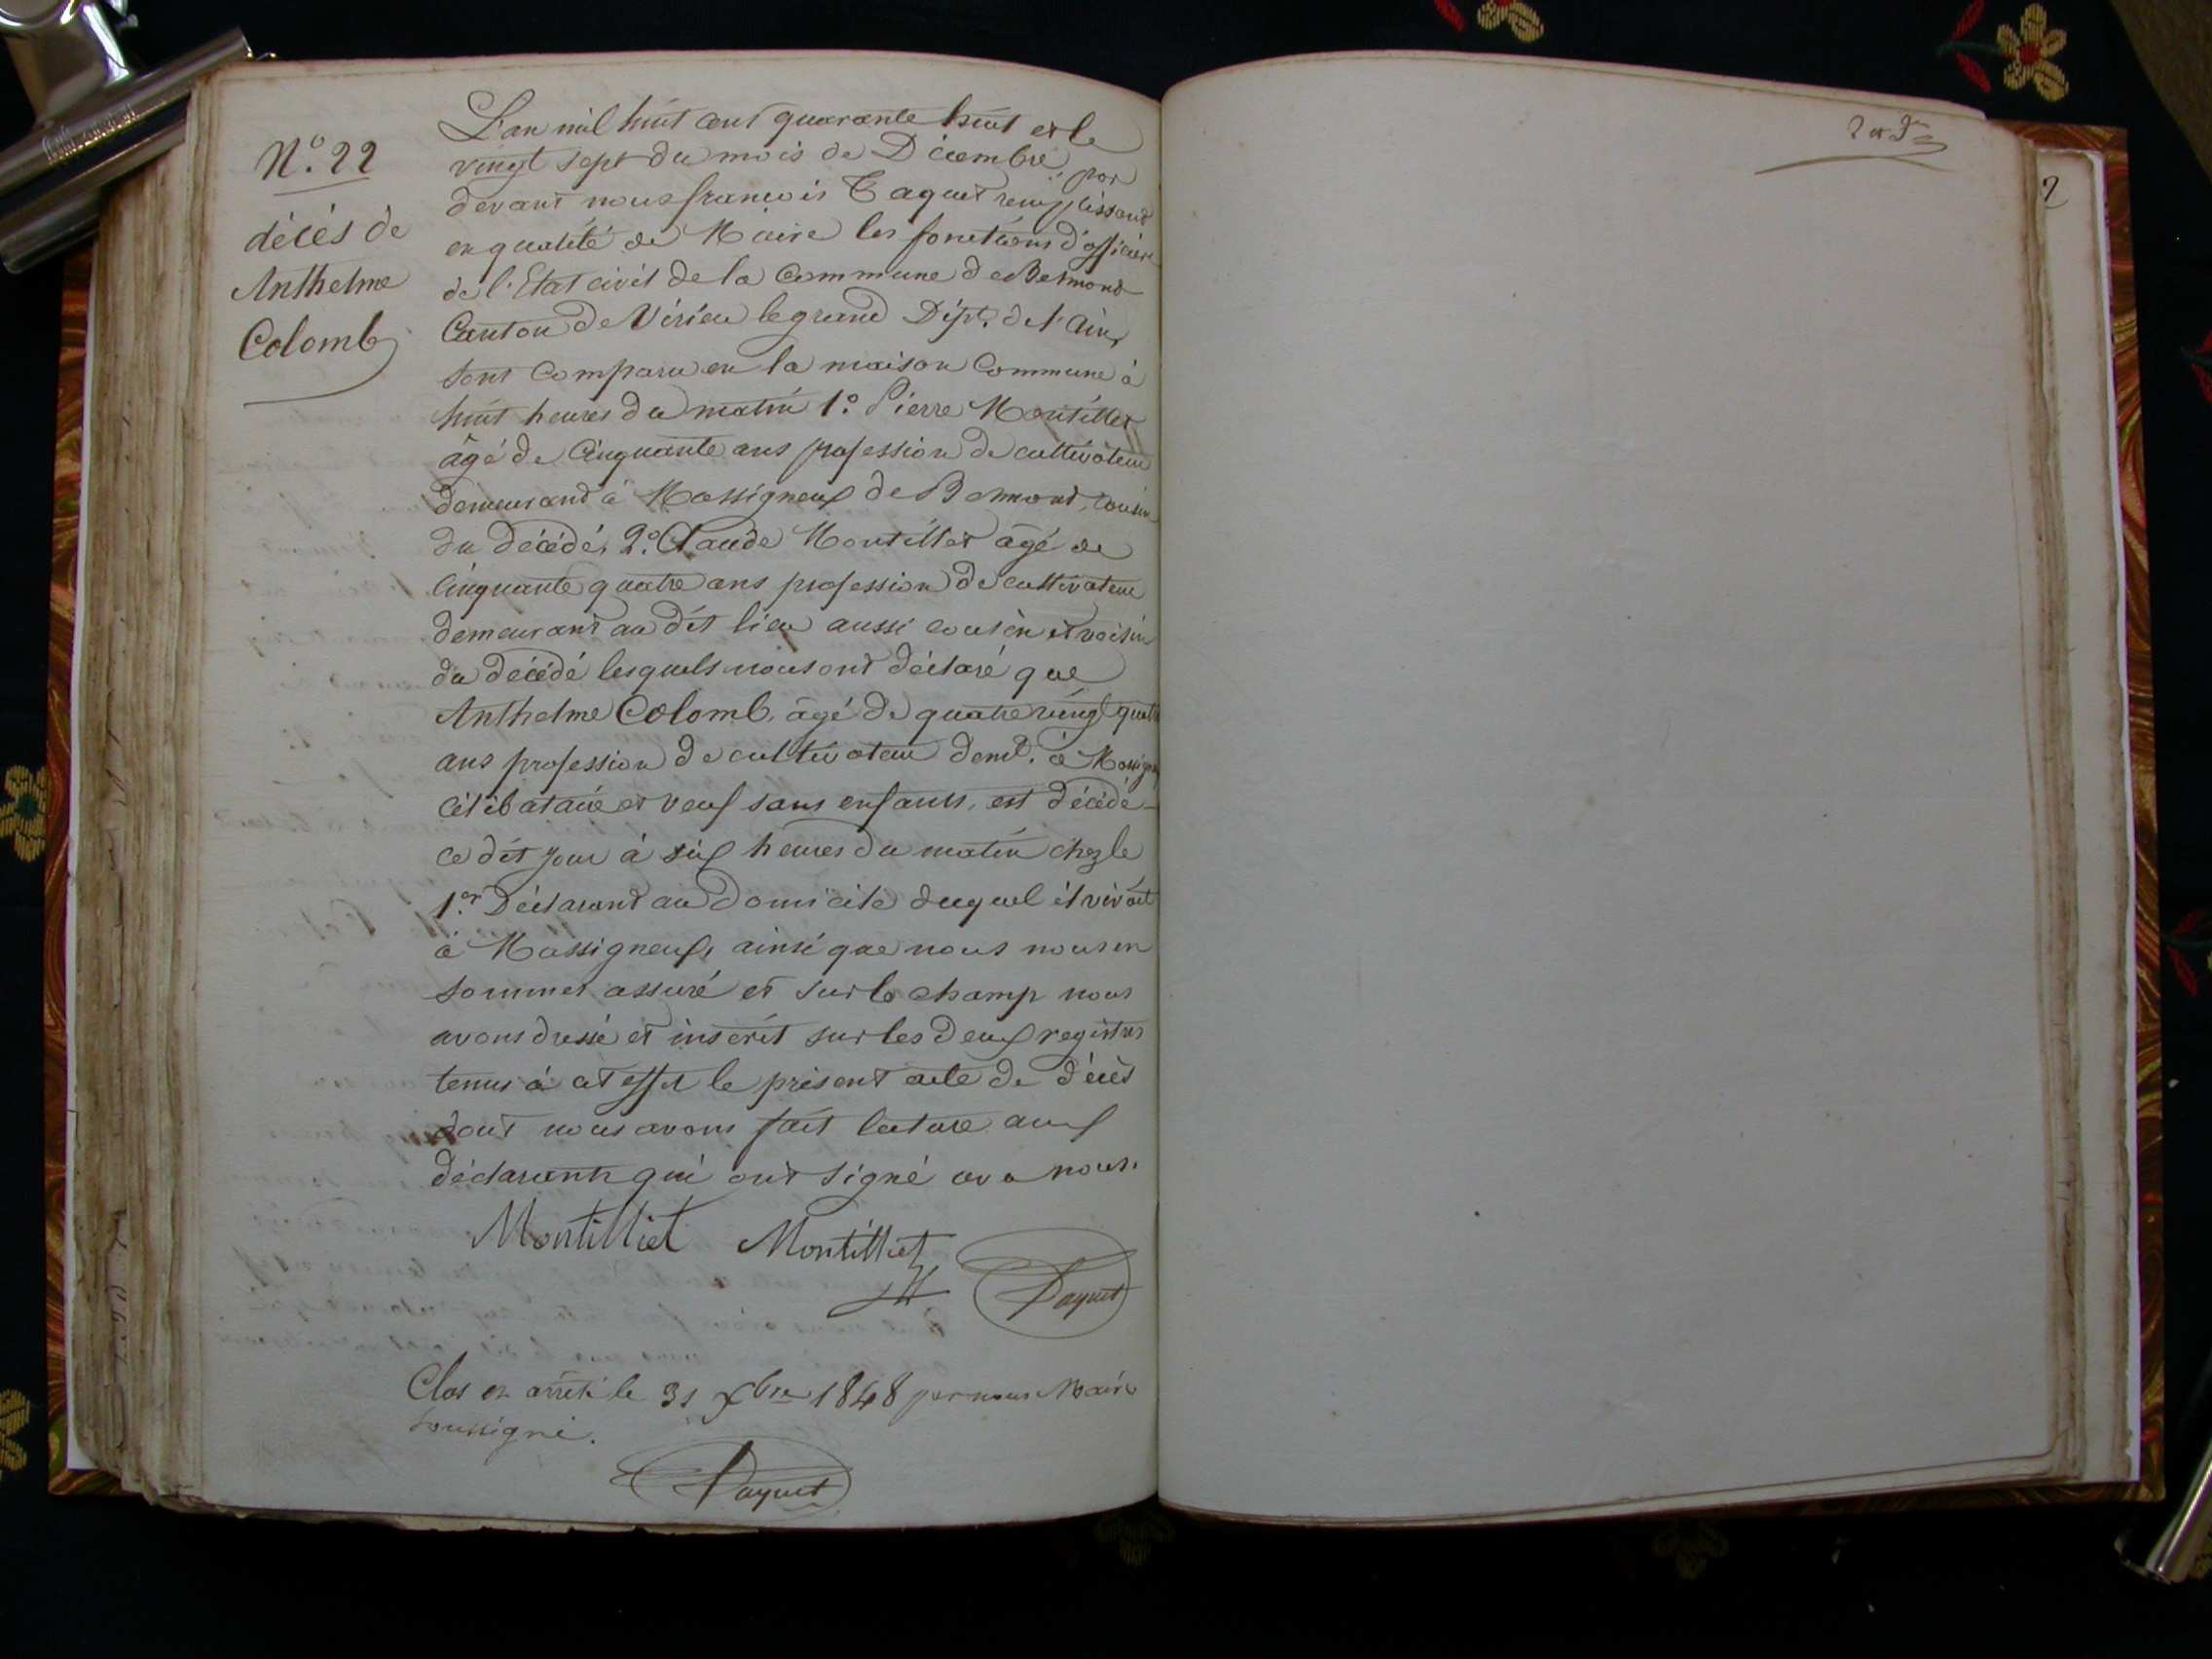 N.º 22
décès de
Anthelme
Colomb
L'an mil huit cent quarante huit et le
vingt sept du mois de Décembre, par
devant nous françois Paquet remplissant
en qualité de Maire les fonctions d'officier
de l'Etat civil de la Commune de Belmont
Canton de Virieu le grand Dépt. de l'Ain,
sont comparu en la maison Commune à
huit heures du matin 1.º Pierre Montillet
âgé de Cinquante ans profession de cultivateur
demeurand à Massigneux de Belmont, cousin
du décédé, 2.º Claude Montillet âgé de
Cinquante quatre ans profession de cultivateur
demeurant au dit lieu aussi cousin et voisin
du décédé lesquels nous ont déclaré que
Anthelme Colomb, âgé de quatre vingt quatre
ans profession de cultivateur demt. à Massign
célibataire et veuf sans enfants, est décédé
ce dit jour à six heures du matin chez le
1.er Déclarant au domicile duquel il vivait
à Massigneux, ainsi que nous nous en
sommes assuré et sur le champ nous
avons dressé et inscrit sur les deux registres
tenus à cet effet le présent acte de décès
dont nous avons fait lecture aux
déclarants qui ont signé avec nous.
Montilliet Montilliet
Paquet
Clos et arrêté le 31 Xbre 1848 par nous Maire
soussigné.
Paquet